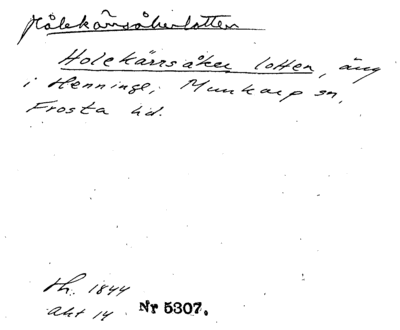 Hålekärrsåkerlotten
Holekärrsåker lotten, äng
i Henninge, Munkarp sn,
Frosta hd.
Lh. 1844
akt 14 Nr 5307.